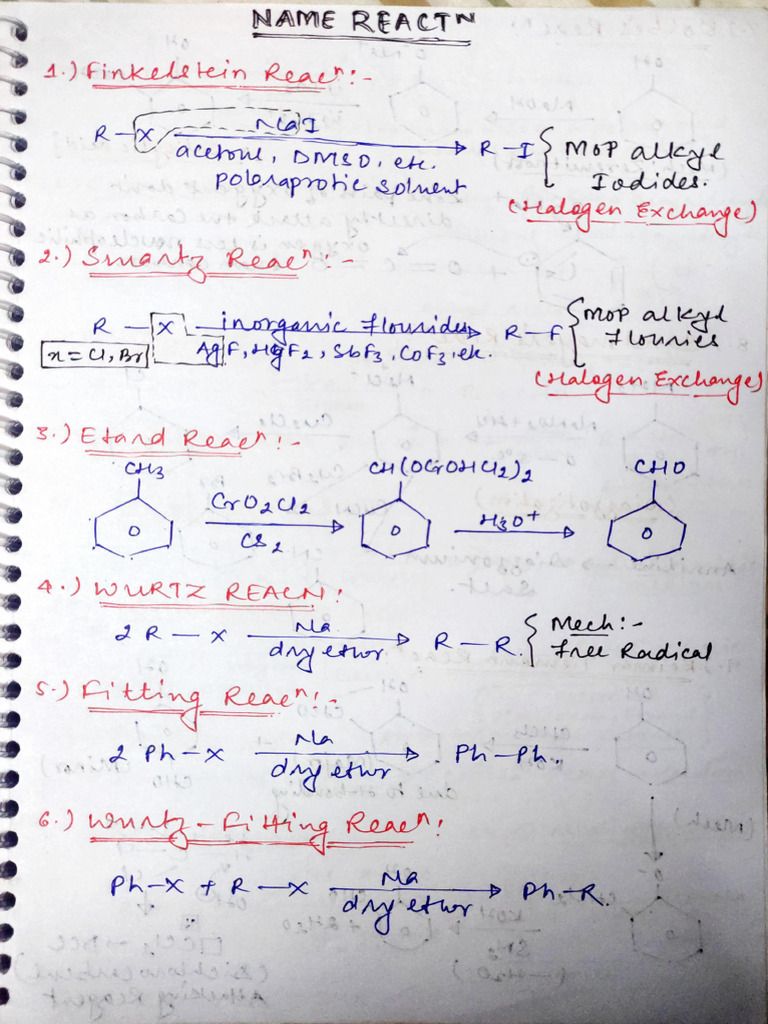 NAME REACTⁿ
1.) Finkelstein Reacⁿ:-
R-X NaI R-I { MOP alkyl
acetone, DMSO, etc. Iodides.
polar aprotic solvent
(Halogen Exchange)
2.) Smartz Reacⁿ:-
R-X inorganic flourides R-F { MOP alkyl
x=Cl, Br AgF, HgF2, SbF3, CoF3, etc. Flouries
(Halogen Exchange)
3.) Etard Reacⁿ:-
CH3 CH(OCrOHCl2)2 CHO
CrO2Cl2 H3O+
CS2
4.) WURTZ REACN:
2 R-X Na R-R. { Mech:-
dry ether Free Radical
5.) Fitting Reacⁿ:-
2 Ph-X Na Ph-Ph.
dry ether
6.) Wurtz-Fitting Reacⁿ:
Ph-X + R-X Na Ph-R.
dry ether